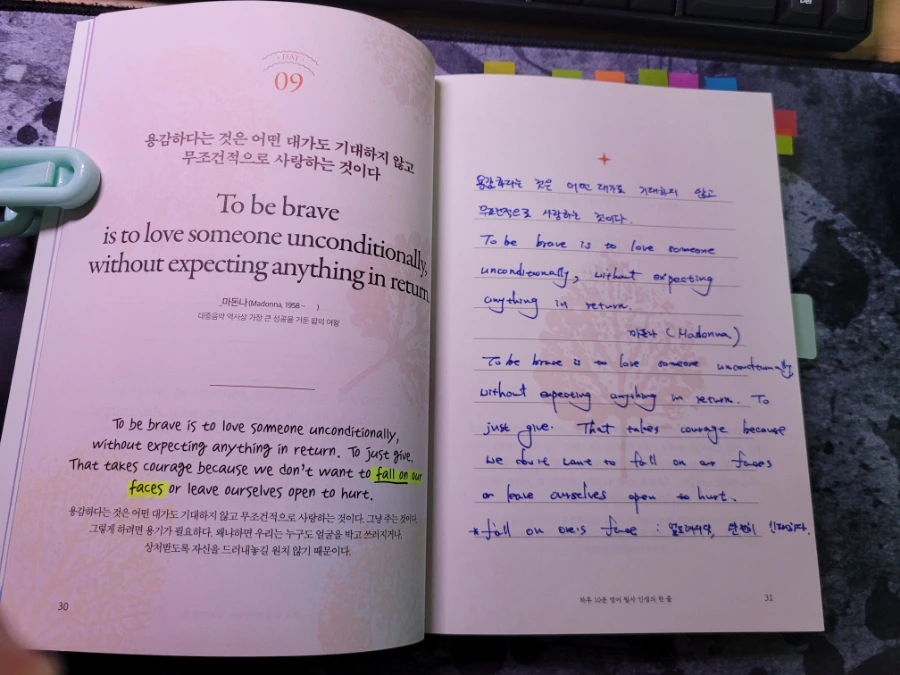 DAY
09
용감하다는 것은 어떤 대가도 기대하지 않고
무조건적으로 사랑하는 것이다
To be brave
is to love someone unconditionally,
without expecting anything in return.
_마돈나(Madonna, 1958~ )
대중음악 역사상 가장 큰 성공을 거둔 팝의 여왕
To be brave is to love someone unconditionally,
without expecting anything in return. To just give.
That takes courage because we don't want to fall on our
faces or leave ourselves open to hurt.
용감하다는 것은 어떤 대가도 기대하지 않고 무조건적으로 사랑하는 것이다. 그냥 주는 것이다.
그렇게 하려면 용기가 필요하다. 왜냐하면 우리는 누구도 얼굴을 박고 쓰러지거나,
상처받도록 자신을 드러내놓길 원치 않기 때문이다.
30
용감하다는 것은 어떤 대가도 기대하지 않고
무조건적으로 사랑하는 것이다.
To be brave is to love someone
unconditionally, without expecting
anything in return.
마돈나 (Madonna)
To be brave is to love someone unconditionally
without expecting anything in return. To
just give. That takes courage because
we don't want to fall on our faces
or leave ourselves open to hurt.
* fall on one's face :
하루 10분 영어 필사 인생의 한 줄
31
Del